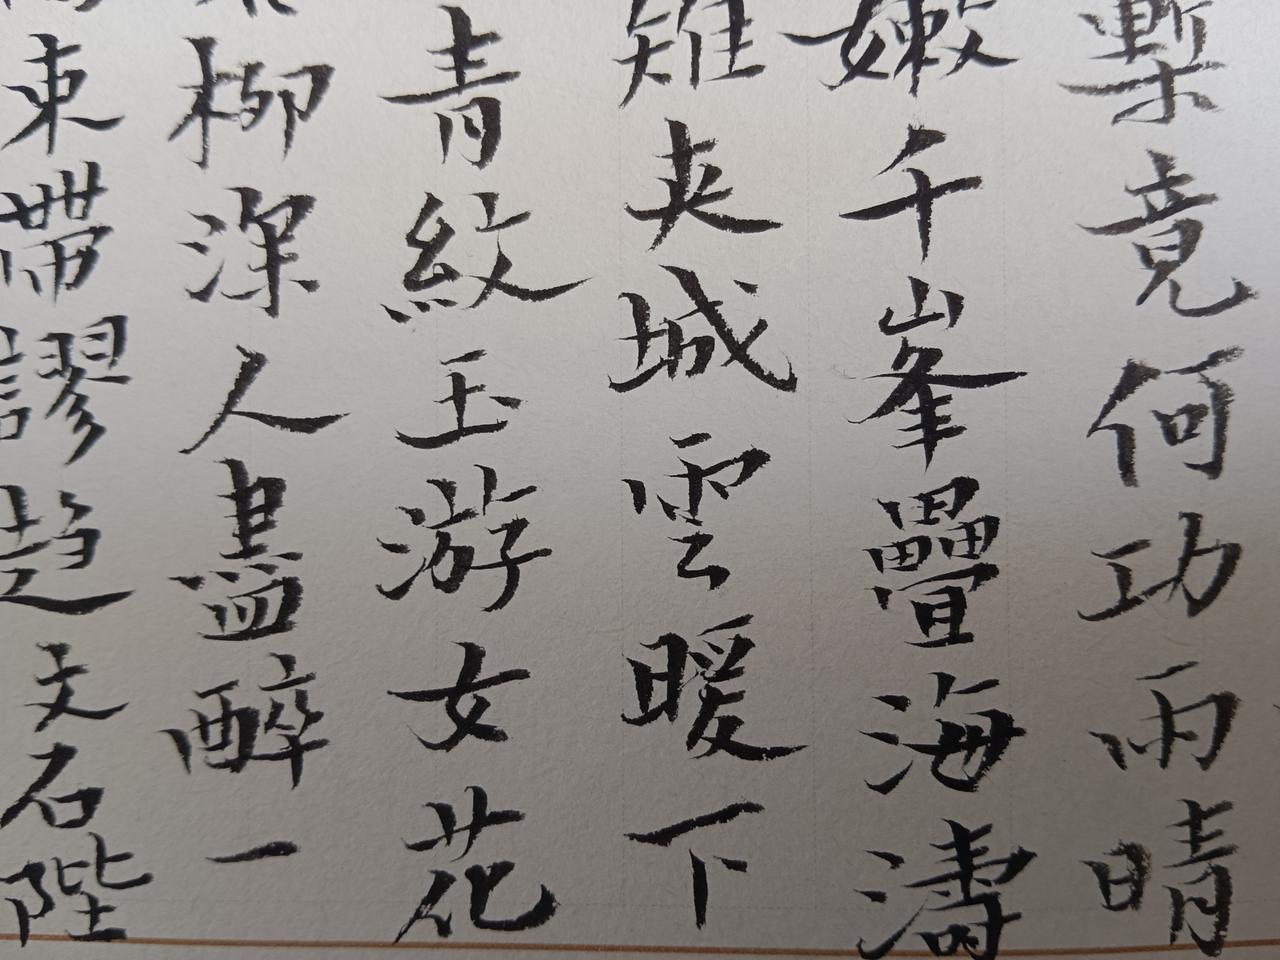 槧竟何功雨晴
嫩千峯疊海濤
雉夾城雲暖下
青紋玉游女花
柳深人盡醉一
束帶謬趨文石陛